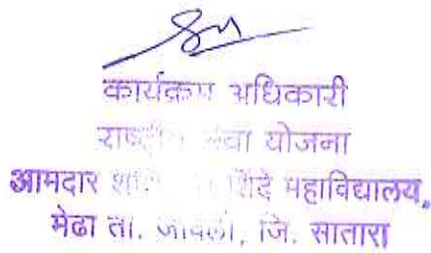 कार्यक्रम अधिकारी
सेवा योजना
आमदार शिंदे महाविद्यालय,
मेढा ता. जावली, जि. सातारा